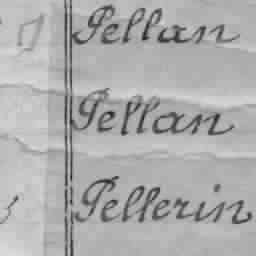 Pellan
Pellan
Pellerin